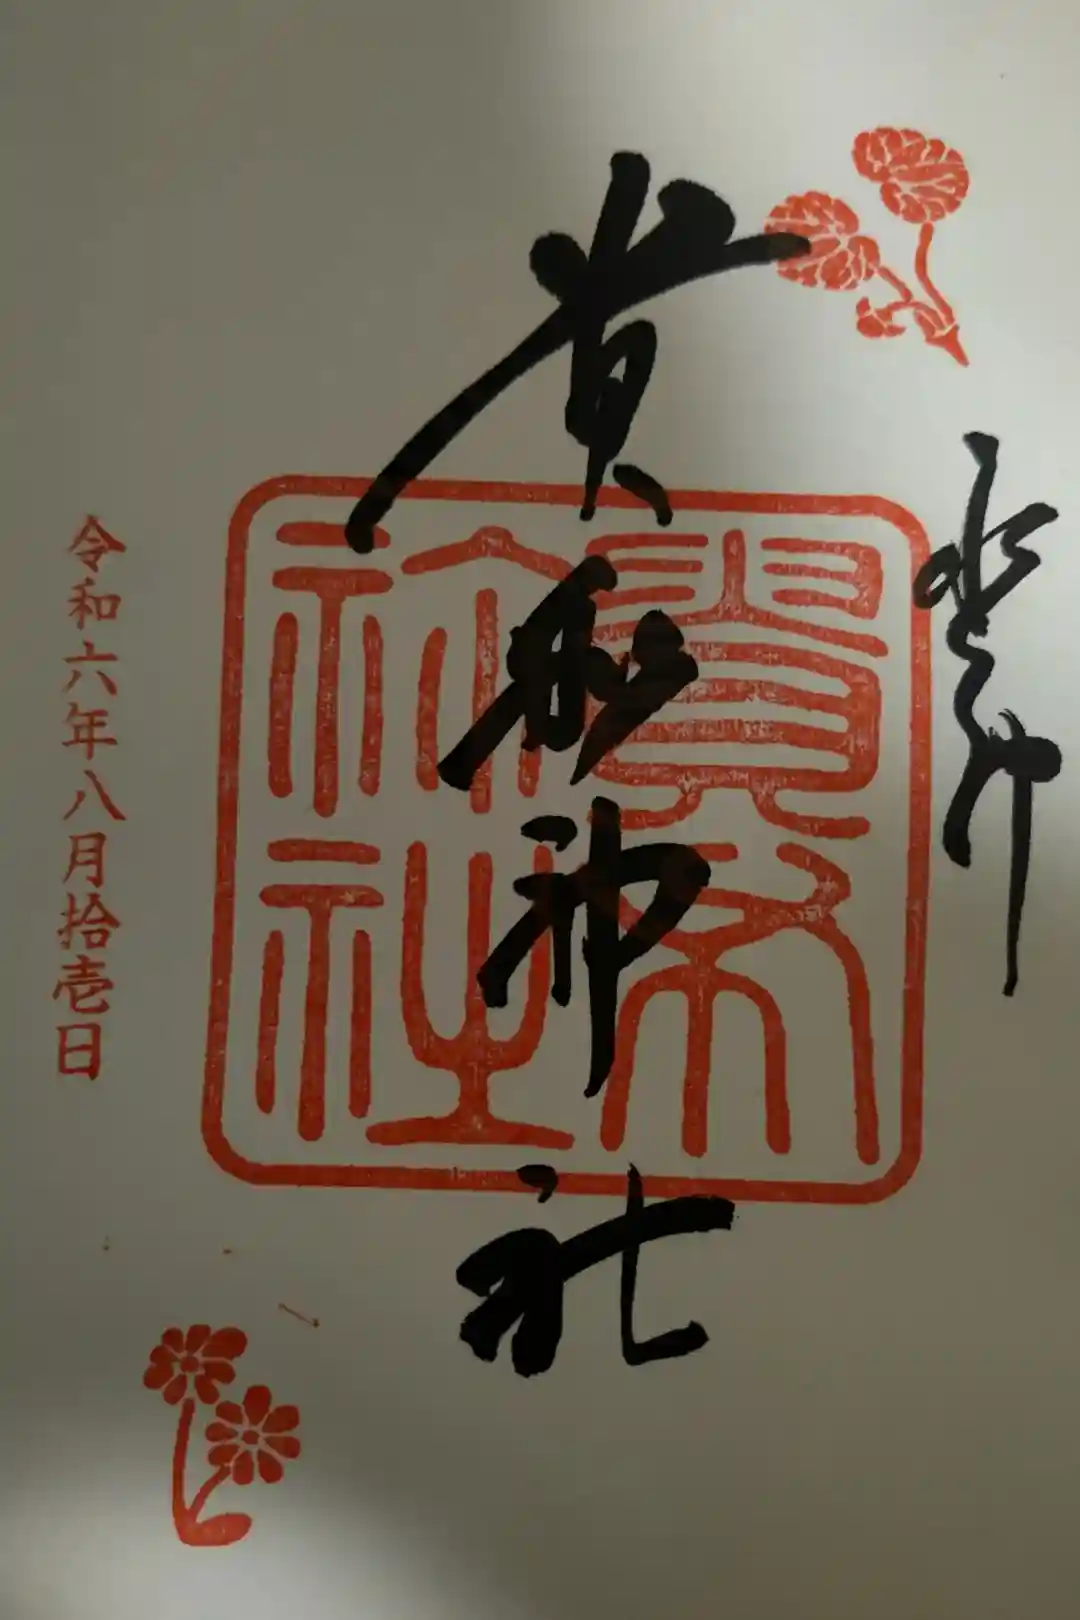 奉拝
貴船神社
貴布祢社
令和六年八月拾壱日